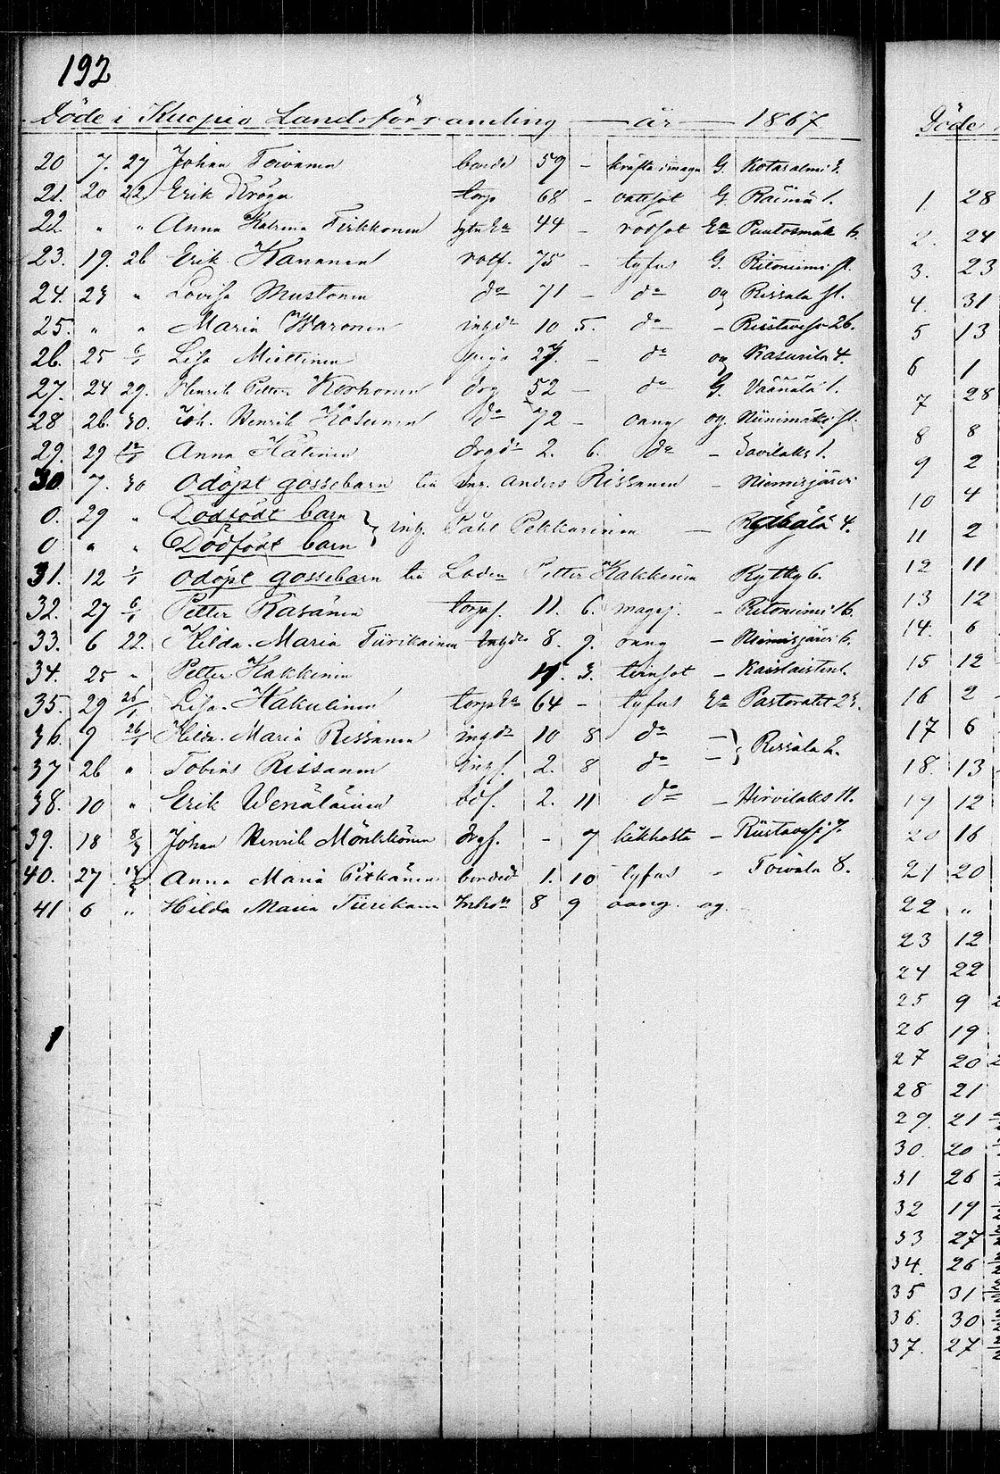 192
Döde i Kuopio Landsförsamling — år — 1867
20 7. 27 Johan Toivanen bonde 59 - kräfta i magen G. Kotasalmi 2.
21. 20 22 Erik Kröger torp 68 - vattsot G. Räimä 1.
22 " " Anna Katrina Tirkkonen Ea 44 - rödsot Ea Puutosmäk 6.
23. 19. 26 Erik Kananen rotf. 75 - tyfus G. Ritoniemi fl.
24. 23 " Lovisa Mustonen do 71 - do og Rissala fl.
25. " " Maria Waronen ingdr 10 5. do - Riistavesi 26.
26. 25 6/1 Lisa Miettinen piga 27. - do og Kasurila 4.
27. 24 29. Henrik Petter Korhonen drg 52 - do G. Väänälä 1.
28 26. 30. Joh. Henrik Kosunen do 72 - oang og. Niinimäki fl.
29. 29 Anna Hälinen drgdr 2. 6. do - Savilaks 1.
30. 7. 30 Odöpt gossebarn till Anders Rissanen - Niemisjärvi
0. 29 " Dödfödt barn } inh. Påhl Pekkarinen - Rythölä 4.
0 " " Dödfödt barn
31. 12 1/1 Odöpt gossebarn till Loden Petter Kakkinen Rytky 6.
32. 27 6/1 Petter Räsänen torpf. 11. 6. magsj. - Ritoniemi 16.
33. 6 22. Hilda Maria Tiirikainen Inhdr 8. 9. oang - Niemisjärvi 6.
34. 25 " Petter Kakkinen 3. tvinsot - Kaislaistenl.
35. 29 26/1 Lisa Hakulinen torp Ea 64 - tyfus Ea Pastoratet 23.
36. 9 26/1 Hilda Maria Rissanen ingdr 10 8 do - } Rissala 2.
37 26 " Tobias Rissanen ingf. 2. 8 do -
38. 10 " Erik Wenäläinen 2. 11 do - Hirvilaks 11.
39. 18 8/3 Johan Henrik Mönkkönen drgf. - 7 kikhosta - Riistavesi 7.
40. 27 14/3 Anna Maria Pitkänen bondedr 1. 10 tyfus - Toivala 8.
41 6 " Hilda Maria Tiirikain Inhdr 8 9 oang. og. -
1
Döde
1 28
2. 24
3. 23
4. 31
5 13
6 1
7 28
8 8
9 2
10 4
11 2
12 11
13 12
14 6
15 12
16 2
17 6
18. 13
19 12
20 16
21 20
22 "
23 12
24 22
25 9
26 19
27 20
28 21
29. 21
30. 20
31 26
32 19
33 27
34. 26
35 31
36. 30
37. 27